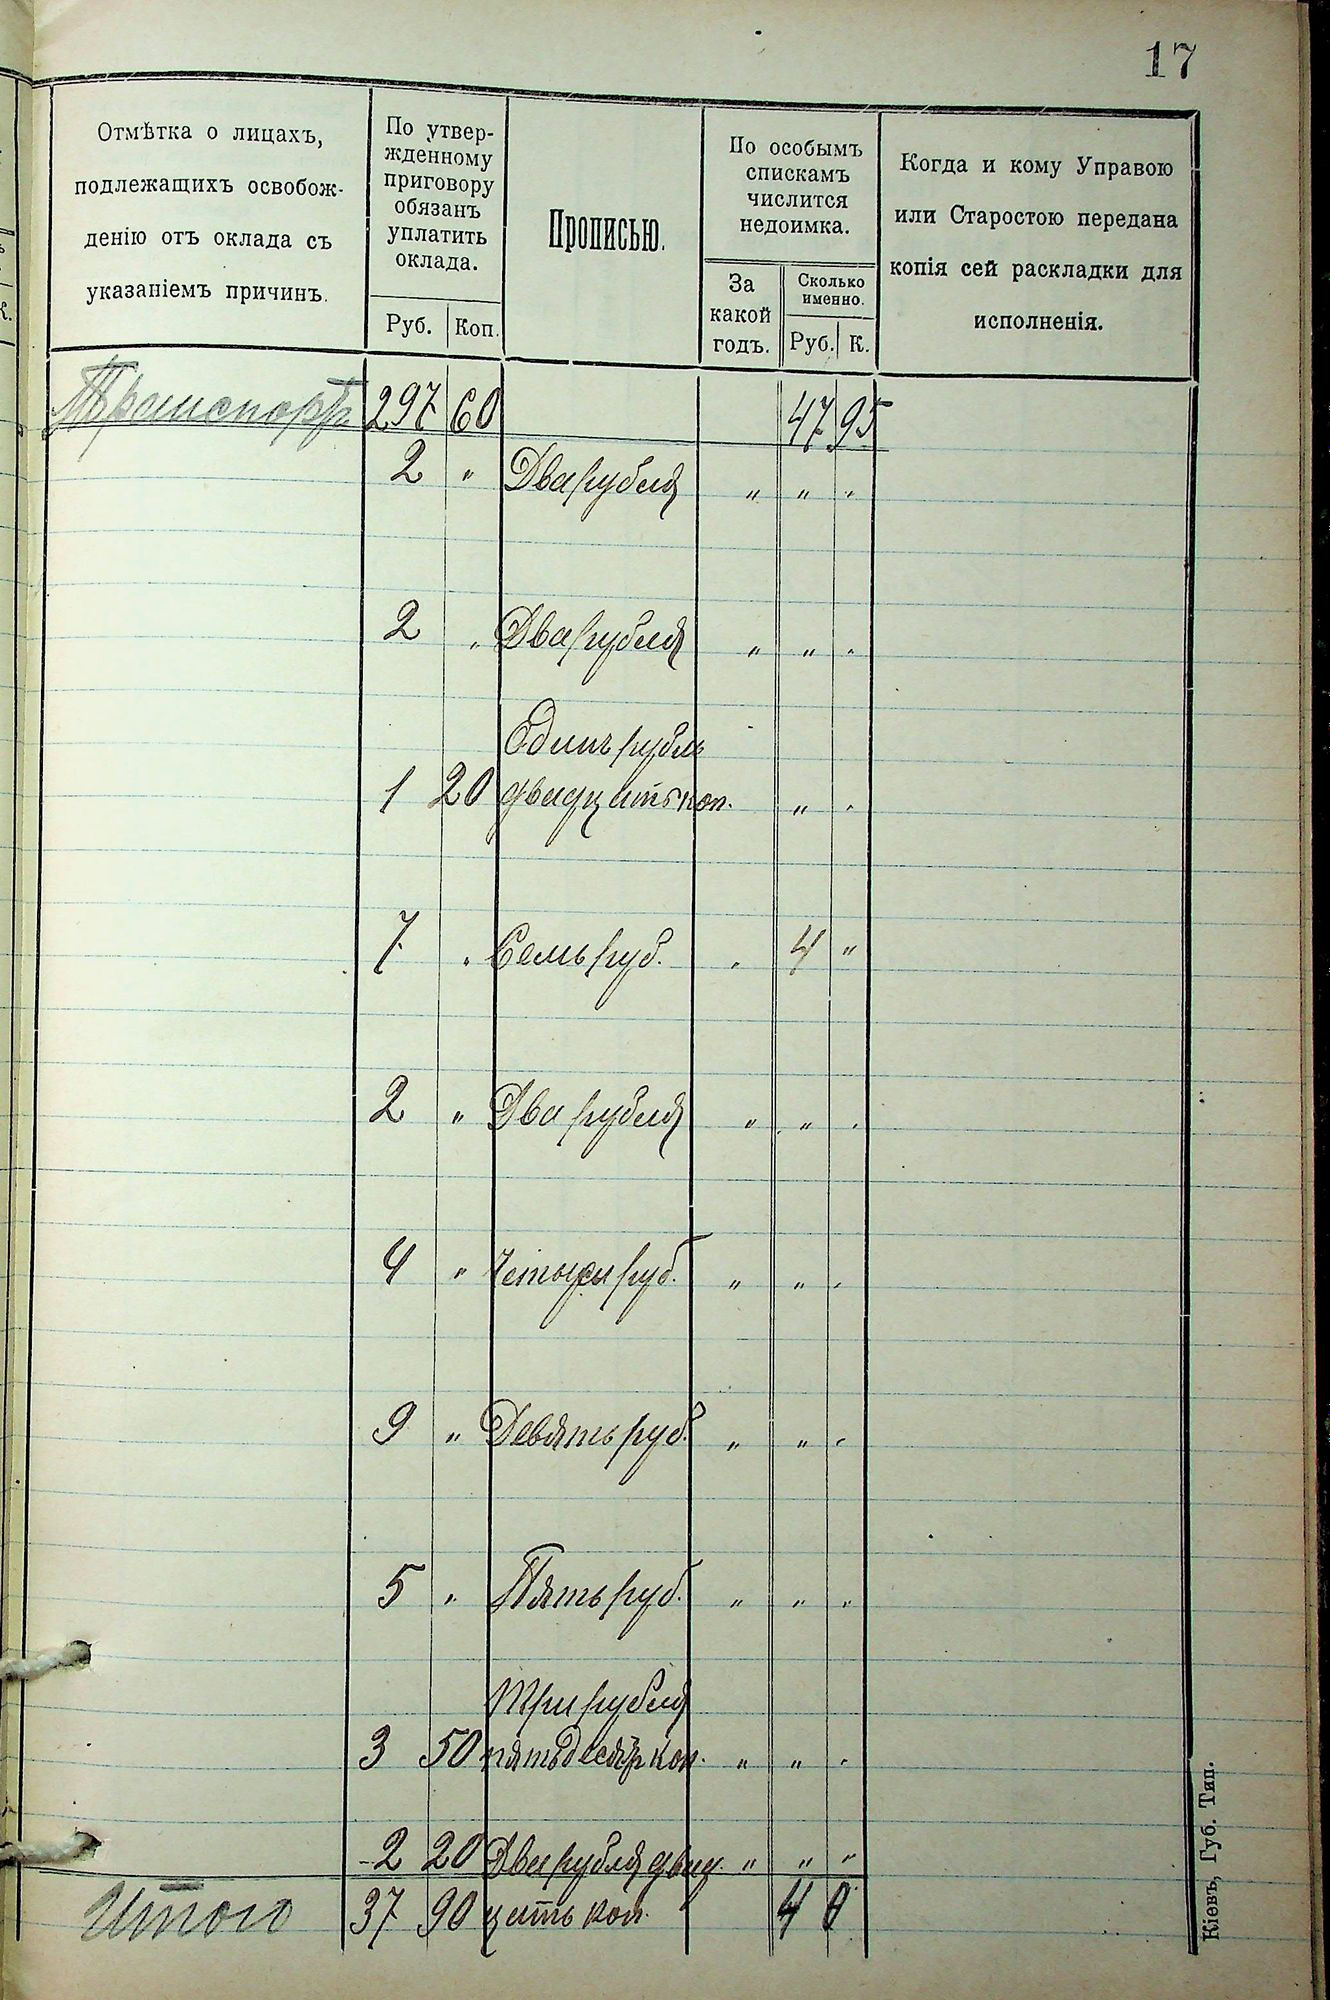 17
Отмѣтка о лицахъ,
подлежащихъ освобож-
денію отъ оклада съ
указаніемъ причинъ.
По утвер-
жденному
приговору
обязанъ
уплатить
оклада.
Руб. Коп.
Прописью.
По особымъ
спискамъ
числится
недоимка.
За
какой
годъ.
Сколько
именно.
Руб. К.
Когда и кому Управою
или Старостою передана
копія сей раскладки для
исполненія.
Транспортъ 297 60 47 95
2 " Два рубля " " "
2 " Два рубля " " "
Одинъ рубль
1 20 двадцать коп. " "
7 " Семь руб. " 4 "
2 " Два рубля " " "
4 " Четыри руб. " " "
9 " Девять руб. " " "
5 " Пять руб. " " "
Три рубля
3 50 пятьдесятъ коп. " " "
2 20 Два рубля двад- " " "
Итого 37 90 цать коп. 4 0
Кіевъ, Губ. Тип.